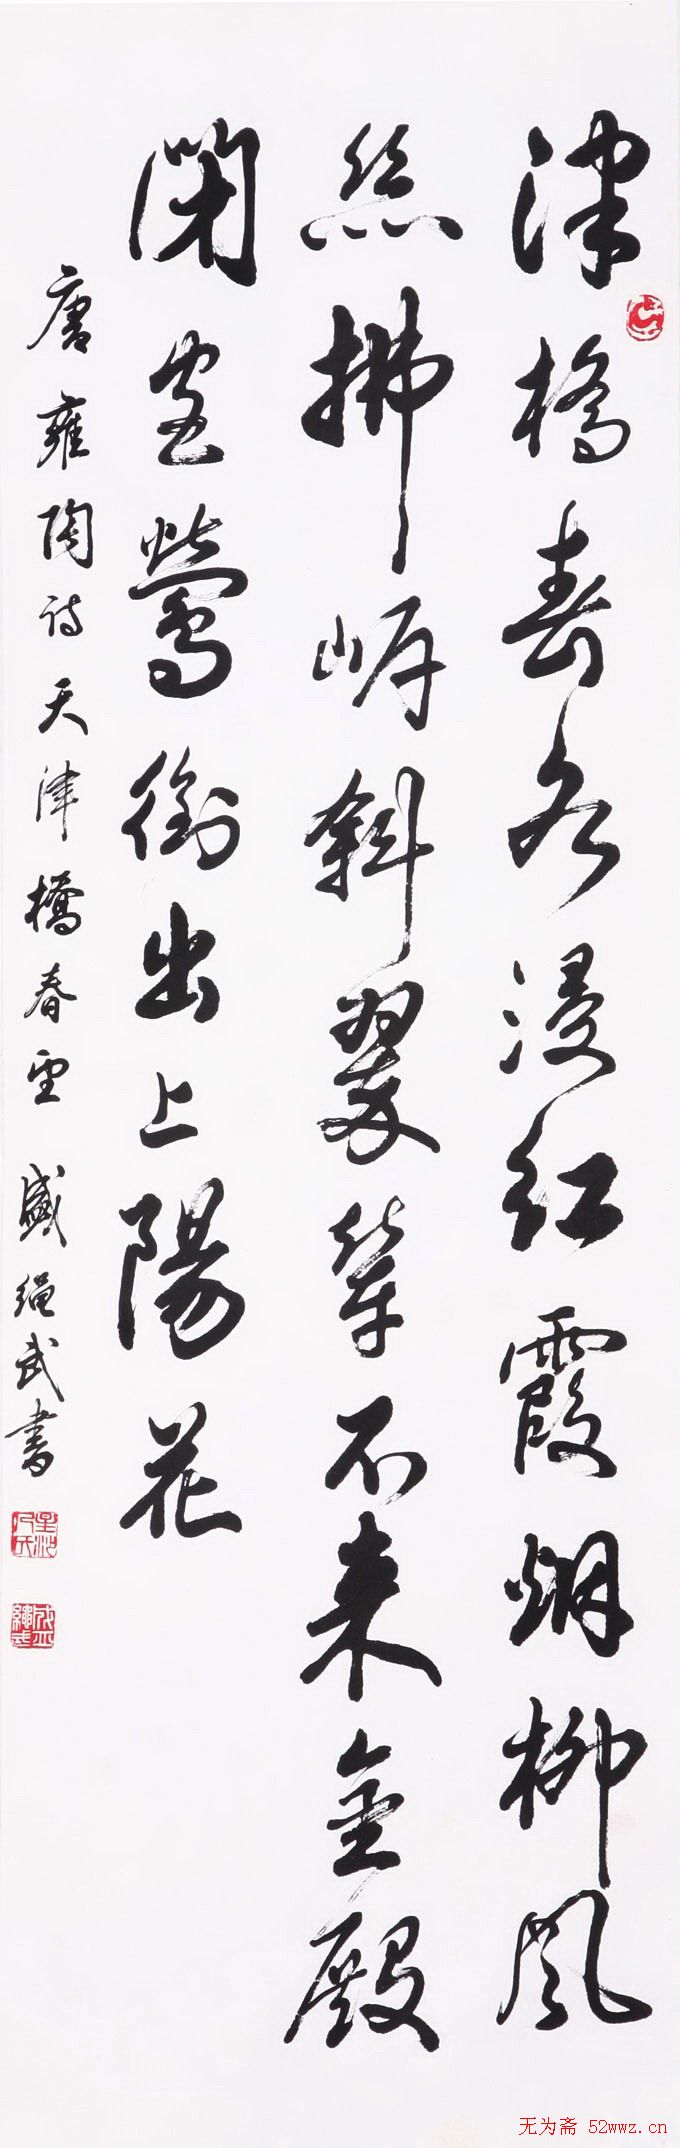 津橋春水浸紅霞煙柳風
絲拂岸斜翠輦不來金殿
閉宮鶯銜出上陽花
唐雍陶詩天津橋春望 盛绳武書
无为斋 52wwz.cn